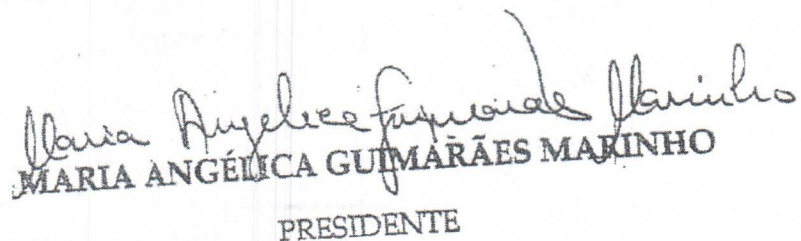 Maria Angelica Guimarães Marinho
MARIA ANGÉLICA GUIMARÃES MARINHO
PRESIDENTE